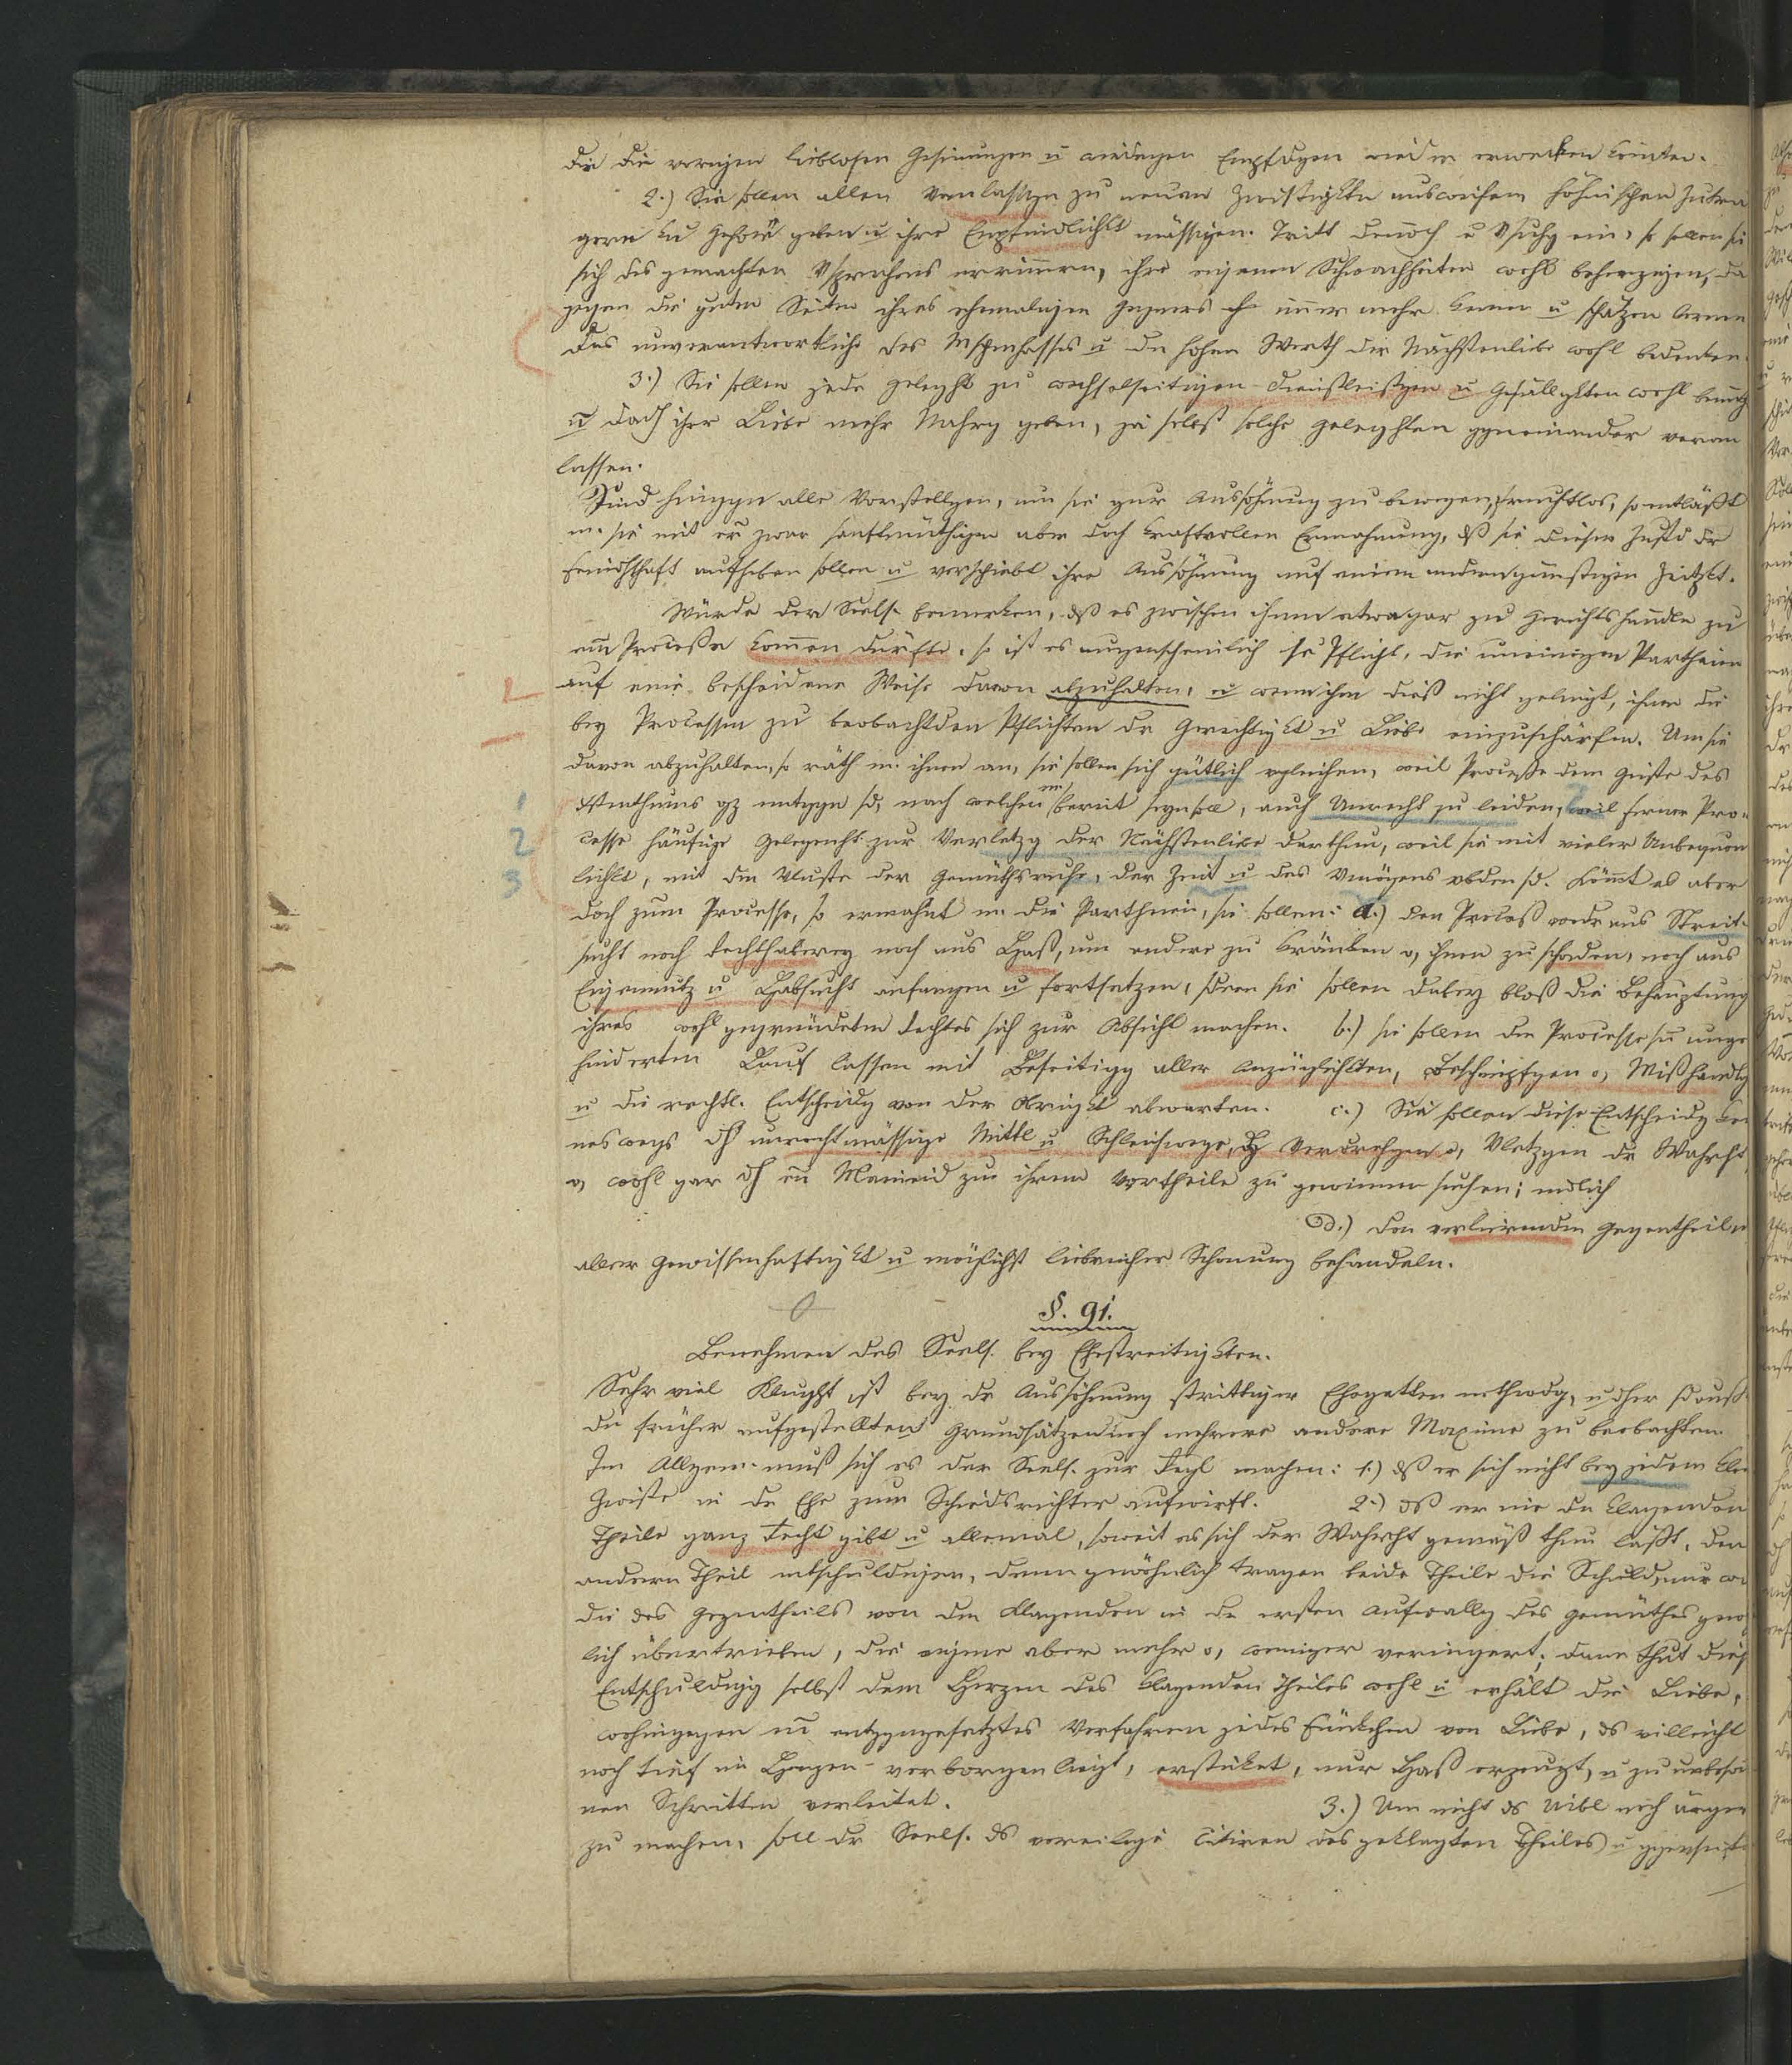 die die vorigen lieblosen Gesinungen u widrigen Empfdgen wieder erwecken könten.
2.) Sie sollen allen Veranlassgen zu neuen Zwistigktn ausweichen höhnischen Zuträ
gern kei Gehör geben u ihre Empfindlichkt mässigen. Tritt denoch e Vsuchg ein, so sollen sie
sich des gemachten Vsprechens erinnern, ihre eigenen Schwachheiten wohl beherzigen, da
gegen die guten Seiten ihres ehemaligen Gegners immer mehr kenen u schätzen lernen
das unverantwortliche des Menschenhasses u den hohen Werth der Nächstenliebe wohl bedenken.
3.) Sie sollen jede Gelegenht zu wechselseitigen Dienstleistgen u Gefälligktten wohl benutz
u dadch ihrer Liebe mehr Nahrg geben, ja selbst solche Gelegenhten ggneinander veran
lassen.
Sind hinggn alle Vorstellgen, um sie zur Aussöhnung zu bewegen, fruchtlos, so entläßt
m. sie mit er zwar sanftmüthigen aber doch kraftvollen Ermahnung, dß sie diesen Zustd der
Feindschaft aufheben sollen u verschiebt ihre Aussöhnung auf einen andern günstigen Zeitpkt.
Würde der Seels. bemerken, dß es zwischen ihnen etwa gar zu Gerichtshändln zu
em Processe kommen dürfte, so ist es augenscheinlich se Pflicht, die uneinigen Partheien
auf eine bescheidene Weise davon abzuhalten, u wenn ihm dieß nicht gelingt, ihnen die
bey Processen zu beobachtden Pflichten der Gerechtigkt u Liebe einzuschärfen. Um sie
davon abzuhalten, so räth m. ihnen an, sie sollen sich gütlich vgleichen, weil Processe dem Geiste des
Xstenthums gz entggn sd, nach welchem m bereit seyn soll, auch Unrecht zu leiden, weil ferner Pro-
cesse häufige Gelegenht zur Verletzg der Nächstenliebe darthun, weil sie mit vieler Unbequem
lichkt, mit dem Vluste der Gemüthsruhe, der Zeit u des Vmögens vbden sd. Kömmt es aber
doch zum Processe, so ermahnt m die Partheien, sie sollen: a.) den Proceß weder aus Streit-
sucht noch Rechthaberey noch aus Haß, um andere zu kränken o, ihnen zu schaden, noch aus
Eigennutz u Habsucht anfangen u fortsetzen, sdern sie sollen dabey bloß die Behauptung
ihres wohl gegründeten Rechtes sich zur Absicht machen. b.) sie sollen dem Processe sn unge
hinderten Lauf lassen mit Beseitigg aller Anzüglichkten, Beschimpfgen o, Mißhandlg
u die rechtl. Entscheidg von der Obrigkt abwarten. c.) Sie sollen diese Entscheidg kei
neswegs dh unrechtmässige Mittel u Schleichwege, dh Verdrehgen o, Vletzgen der Wahrht,
o, wohl gar dh en Meineid zu ihrem Vortheile zu gewinnen suchen; endlich
d.) den verlierenden Gegentheil m
aller Gewissenhaftigkt u möglichst liebreicher Schonung behandeln.
§. 91.
Benehmen des Seels. bey Ehestreitigkten.
Sehr viel Klught ist bey der Aussöhnung strittiger Ehegatten nothwdg, u dher sd auß
den früher aufgestellten Grundsätzen noch mehrere andere Maxime zu beobachten.
Im Allgem. muß sich es der Seels. zur Regl machen: 1.) dß er sich nicht bey jedem klei
Zwiste in der Ehe zum Schiedsrichter aufwirft. 2.) dß er nie dem klagenden
Theile ganz Recht gibt u allemal, soweit es sich der Wahrht gemäß thun läßt, den
andern Theil entschuldigen, denn gewöhnlich tragen beide Theile die Schuld, nur wi
die des Gegentheils von dem Klagenden in der ersten Aufwallg des Gemüthes gewö
lich übertrieben, die eigene aber mehr o, weniger veringert; dann thut dies
Entschuldigg selbst dem Herzen des klagenden Theiles wohl u erhält die Liebe,
wohingegen ein entggngesetztes Verfahren jedes Fünkchen von Liebe, ds villeicht
noch tief im Herzen verborgen liegt, ersticket, nur Haß erzeugt, u zu unbeso
nen Schritten verleitet. 3.) Um nicht ds Uibl noch ärger
zu machen, soll der Seels. ds voreilige Citiren des geklagten Theiles u ggenseit